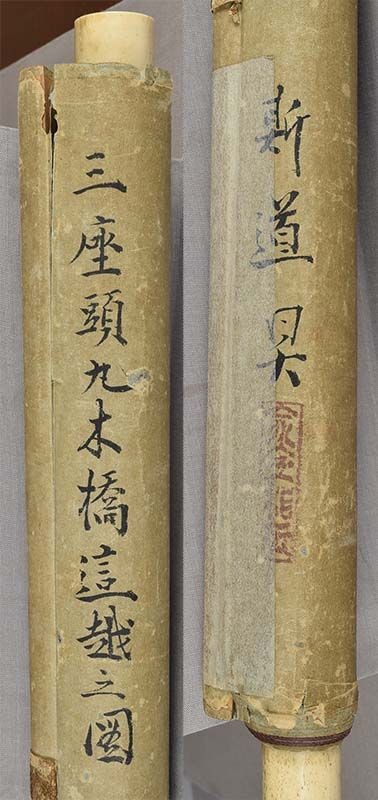 三座頭丸木橋這越之圖
斯道